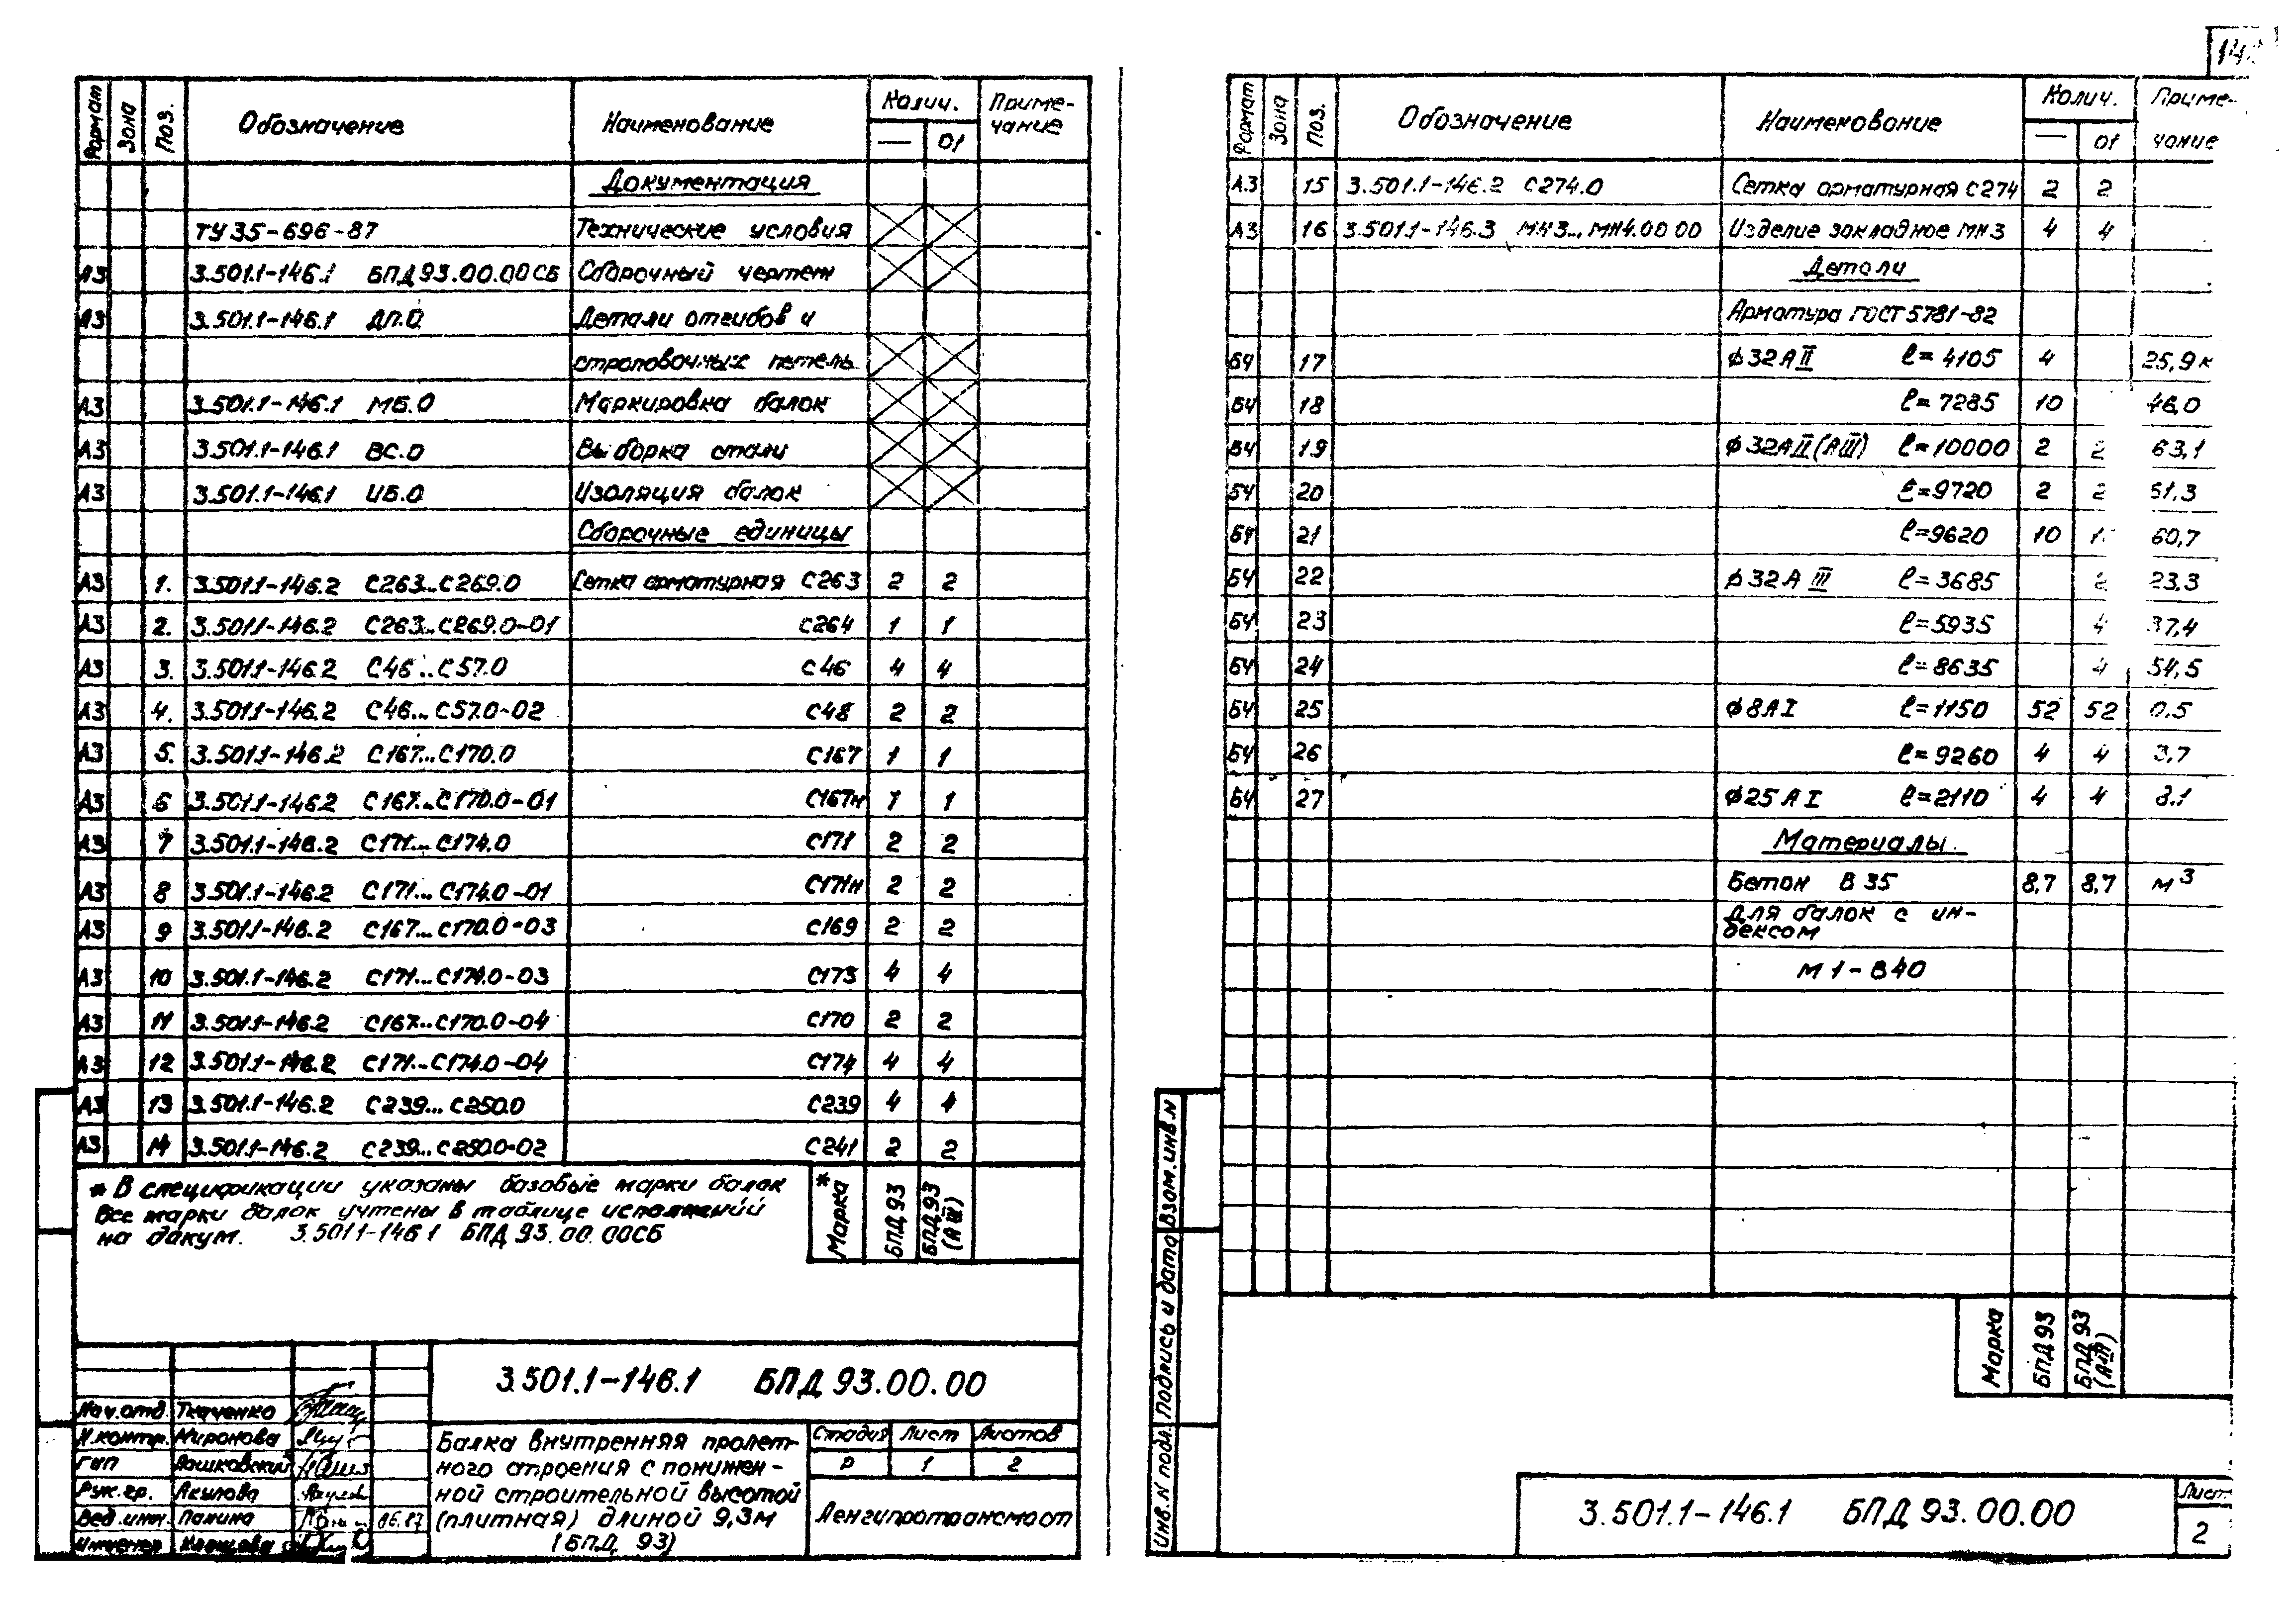 Формат Зона Поз. Обозначение Наименование Колич. Приме-
чание
— 01
Документация
ТУ35-696-87 Технические условия
А3 3.501.1-146.1 БПД93.00.00СБ Сборочный чертеж
А3 3.501.1-146.1 ДП.0 Детали отгибов и
строповочных петель
А3 3.501.1-146.1 МБ.0 Маркировка балок
А3 3.501.1-146.1 ВС.0 Выборка стали
А3 3.501.1-146.1 ИБ.0 Изоляция балок
Сборочные единицы
А3 1. 3.501.1-146.2 С263...С269.0 Сетка арматурная С263 2 2
А3 2. 3.501.1-146.2 С263...С269.0-01 С264 1 1
А3 3. 3.501.1-146.2 С46...С57.0 С46 4 4
А3 4. 3.501.1-146.2 С46...С57.0-02 С48 2 2
А3 5. 3.501.1-146.2 С167...С170.0 С167 1 1
А3 6 3.501.1-146.2 С167...С170.0-01 С167н 1 1
А3 7 3.501.1-146.2 С171...С174.0 С171 2 2
А3 8 3.501.1-146.2 С171...С174.0-01 С171н 2 2
А3 9 3.501.1-146.2 С167...С170.0-03 С169 2 2
А3 10 3.501.1-146.2 С171...С174.0-03 С173 4 4
А3 11 3.501.1-146.2 С167...С170.0-04 С170 2 2
А3 12 3.501.1-146.2 С171...С174.0-04 С174 4 4
А3 13 3.501.1-146.2 С239...С250.0 С239 4 4
А3 14 3.501.1-146.2 С239...С250.0-02 С241 2 2
* В спецификации указаны базовые марки балок
Все марки балок учтены в таблице исполнений
на докум. 3.501.1-146.1 БПД 93.00.00СБ
Марка * БПД 93 БПД 93 (АIII)
3.501.1-146.1 БПД 93.00.00
Нач.отд. Ткаченко
Н.контр. Миронова
ГИП
Рук.гр. Акулова
Вед.инж. Панина 06.87
Инженер
Балка внутренняя пролет-
ного строения с понижен-
ной строительной высотой
(плитная) длиной 9,3м
(БПД 93)
Стадия Лист Листов
Р 1 2
Ленгипротрансмост
Формат Зона Поз. Обозначение Наименование Колич. Приме-
чание
— 01
А3 15 3.501.1-146.2 С274.0 Сетка арматурная С274 2 2
А3 16 3.501.1-146.3 МН3...МН4.00 00 Изделие закладное МН3 4 4
Детали
Арматура ГОСТ 5781-82
БЧ 17 ϕ32АII ℓ=4105 4 25,9к
БЧ 18 ℓ=7285 10 46,0
БЧ 19 ϕ32АII(АIII) ℓ=10000 2 2 63,1
БЧ 20 ℓ=9720 2 2 61,3
БЧ 21 ℓ=9620 10 60,7
БЧ 22 ϕ32А III ℓ=3685 2 23,3
БЧ 23 ℓ=5935 4 37,4
БЧ 24 ℓ=8635 4 54,5
БЧ 25 ϕ8АI ℓ=1150 52 52 0.5
БЧ 26 ℓ=9260 4 4 3,7
БЧ 27 ϕ25АI ℓ=2110 4 4 8.1
Материалы
Бетон В 35 8,7 8,7 м³
для балок с ин-
дексом
М 1-В40
Марка БПД 93 БПД 93 (АIII)
Инв.N подл. Подпись и дата Взам.инв.N
3.501.1-146.1 БПД 93.00.00
Лист
2